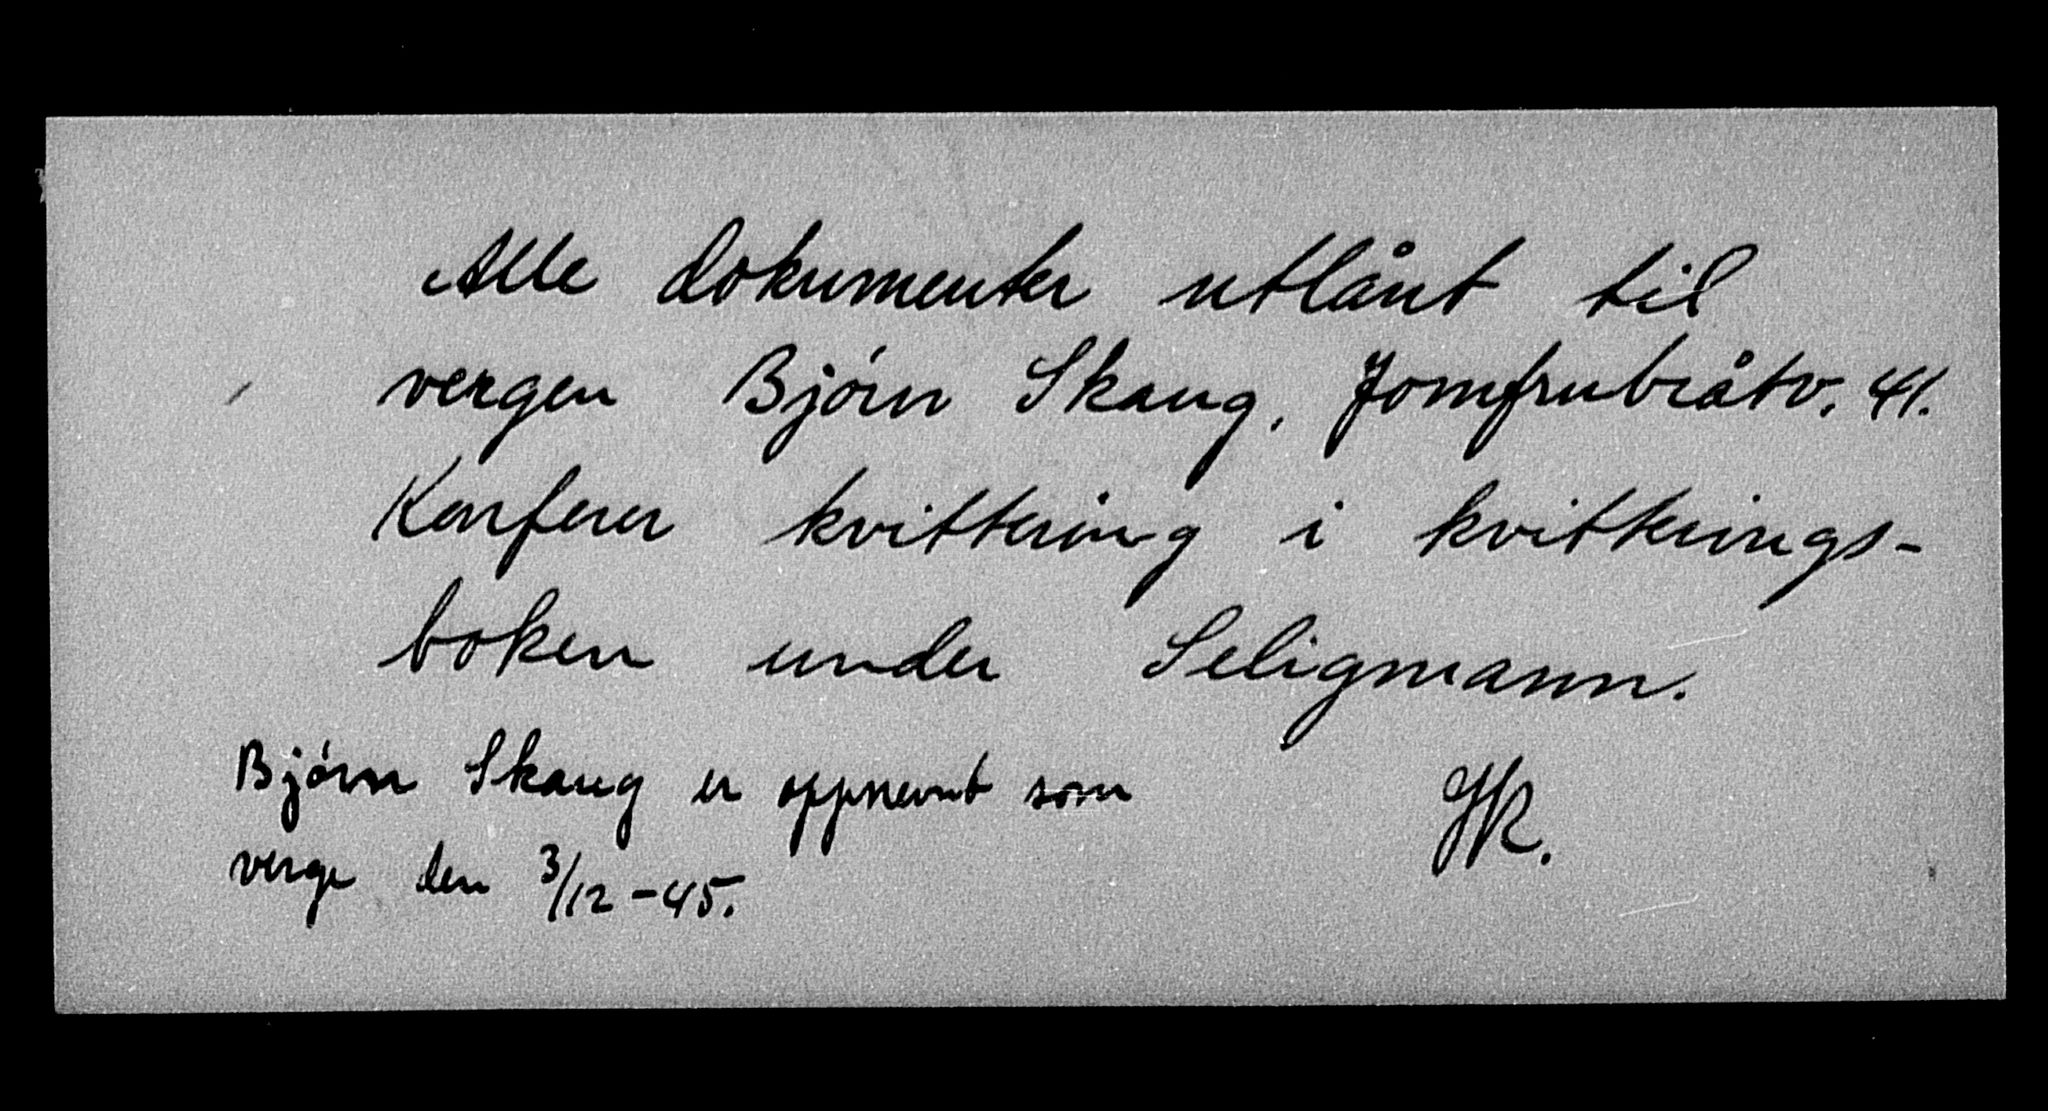 Alle dokumenter utlånt til
vergen Bjórn Skaug, Jomfrubråtv. 41.
Konferer kvittering i kvitterings-
boken under Seligmann.
Bjórn Skaug er oppnevnt som
verge den 3/12-45.
HR.